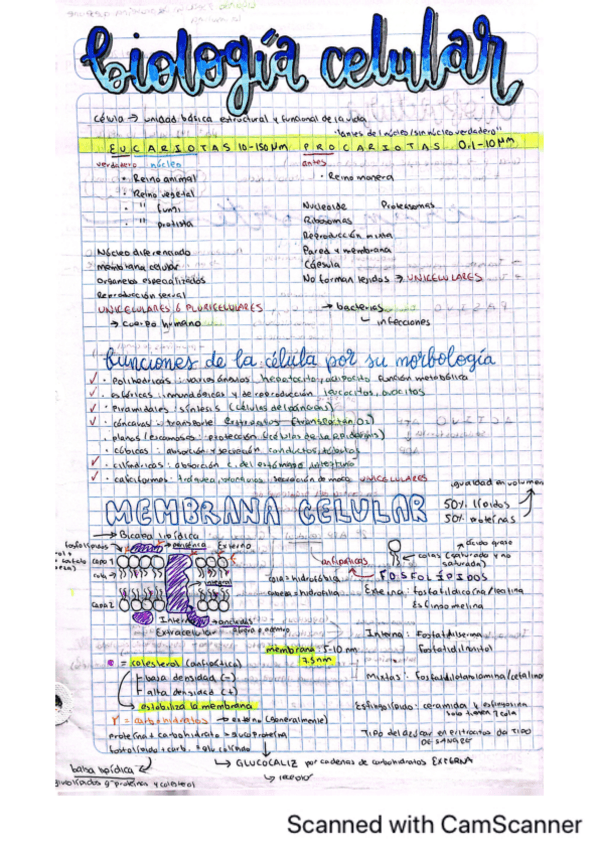 biología celular
célula → unidad básica estructural y funcional de la vida
"antes del núcleo/sin núcleo verdadero"
EUCARIOTAS 10-150 µm PROCARIOTAS 0.1-10 µm
verdadero núcleo antes
• Reino animal • Reino monera
• Reino vegetal
• " fungi Nucleoide Proteasomas
• " protista Ribosomas
Reproducción
Núcleo diferenciado Pared y membrana
membrana celular Cápsula
Organelos especializados No forman tejidos → UNICELULARES
Reproducción sexual
UNICELULARES ó PLURICELULARES → bacterias
→ cuerpo humano infecciones
funciones de la célula por su morfología
• Polihédricas : varios ángulos hepatocito, adipocito función metabólica
• esféricas : inmunológicas y de reproducción leucocitos, ovocitos
• Piramidales : síntesis (células del páncreas)
• cóncavas : transporte eritrocitos (transportan O2)
• planas/escamosas : protección (células de la epidermis)
• cúbicas : absorción y secreción conductos, túbulos
• cilíndricas : absorción c. del estómago, intestino
• caliciformes : tráquea, secreción de moco UNICELULARES
igualdad en volumen
MEMBRANA CELULAR 50% lípidos
50% proteínas
→ Bicapa lipídica
fosfolípidos periférica Externo
ácido graso
capa 1 anfipáticas colas (saturado y no saturada)
cola integral cola = hidrofóbica FOSFOLÍPIDOS
cabeza = hidrofílica Externa : fosfatidilcolina/lecitina
capa 2 Esfingomielina
Interno
Extracelular Interna : Fosfatidilserina
membrana : 5-10 nm Fosfatidilinositol
7.5 nm
= colesterol (anfipática) Mixtas : Fosfatidiletanolamina/cefalina
baja densidad (-)
alta densidad (+)
→ estabiliza la membrana Esfingolípidos : ceramida y esfingosina
solo tienen 1 cola
Y = carbohidratos → externo (generalmente)
proteína + carbohidrato = glucoproteína Tipo del azúcar en eritrocitos da TIPO DE SANGRE
fosfolípido + carb. = glucolípido
→ GLUCOCALIZ por cadenas de carbohidratos EXTERNA
balsa lipídica
proteínas y colesterol
Scanned with CamScanner